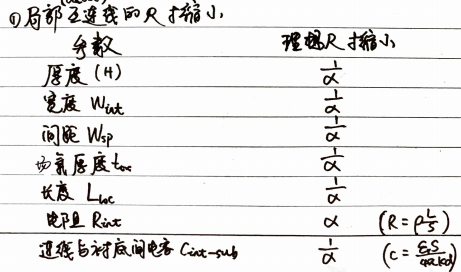 ①局部互连线的尺寸缩小
参数 理想尺寸缩小
厚度 (H) 1/α
宽度 Wint 1/α
间距 Wsp 1/α
场氧厚度 tox 1/α
长度 Lloc 1/α
电阻 Rint α (R=ρL/S)
连线与衬底间电容 Cint-sub 1/α (C=εS/4πkd)